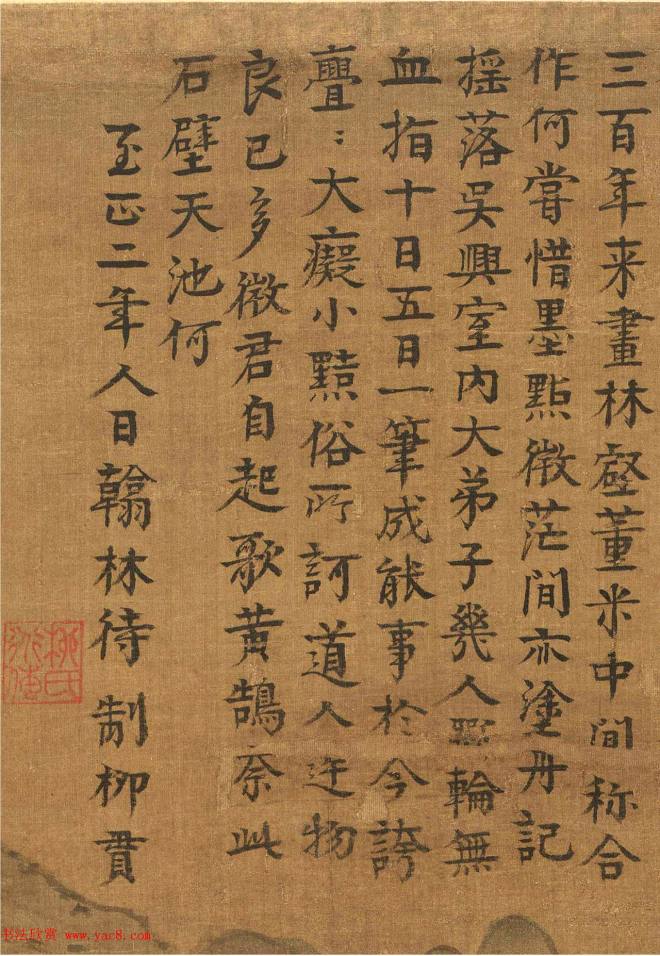 三百年来畫林壑董米中間称合
作何嘗惜墨點微茫間亦塗丹記
揺落吳興室内大弟子幾人斲輪無
血指十日五日一筆成能事於今誇
亹〻大癡小黠俗所訶道人迕物
良已多微君自起歌黄鵠奈此
石壁天池何
至正二年人日翰林待制柳貫
书法欣赏 www.yac8.com